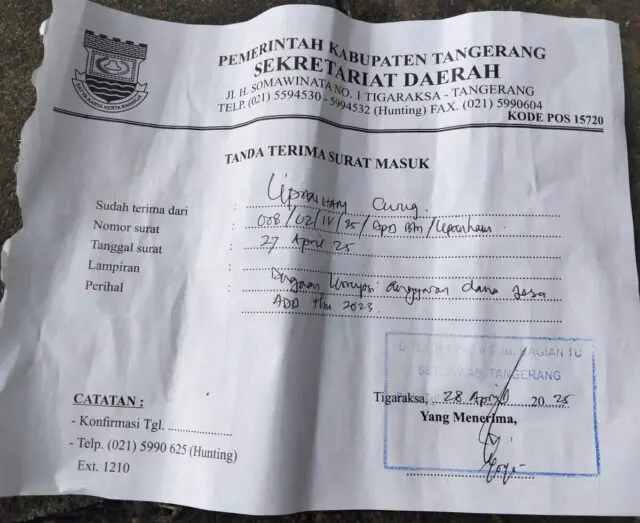 PEMERINTAH KABUPATEN TANGERANG
SEKRETARIAT DAERAH
Jl. H. SOMAWINATA NO. 1 TIGARAKSA - TANGERANG
TELP. (021) 5594530 - 5994532 (Hunting) FAX. (021) 5990604
KODE POS 15720
TANDA TERIMA SURAT MASUK
Sudah terima dari : Curug.
Nomor surat : 008/02/IV/25/
Tanggal surat : 27 April 25
Lampiran :
Perihal : Dugaan Korupsi anggaran dana Desa
ADD thn 2023.
SUB. BAGIAN TU
TANGERANG
Tigaraksa, 28 April 2025
Yang Menerima,
CATATAN :
- Konfirmasi Tgl.
- Telp. (021) 5990 625 (Hunting)
Ext. 1210